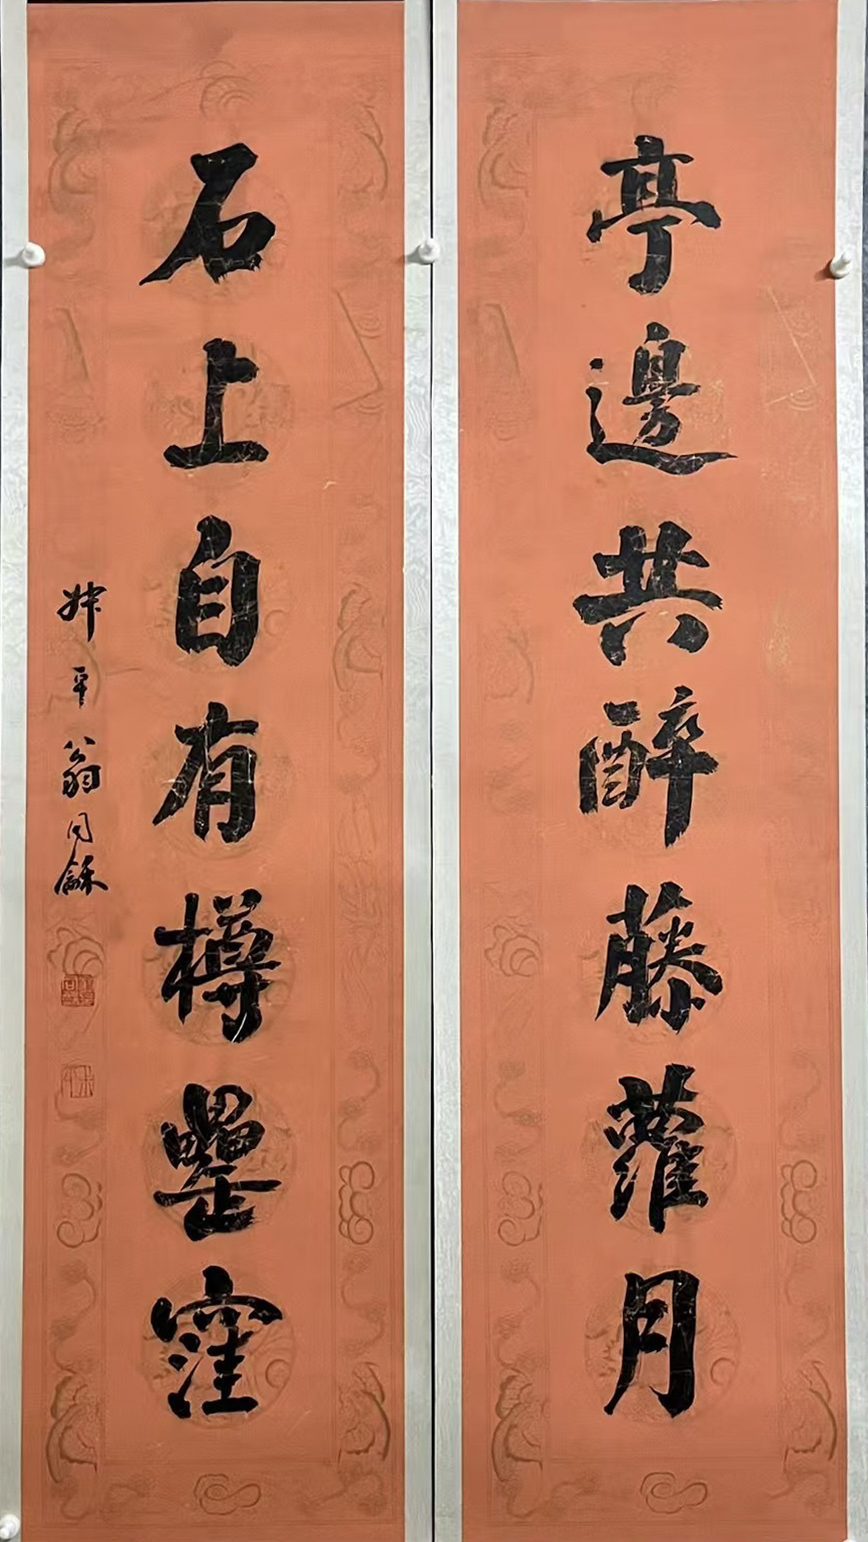 亭邊共醉藤蘿月
石上自有樽罍窪
叔平翁同龢